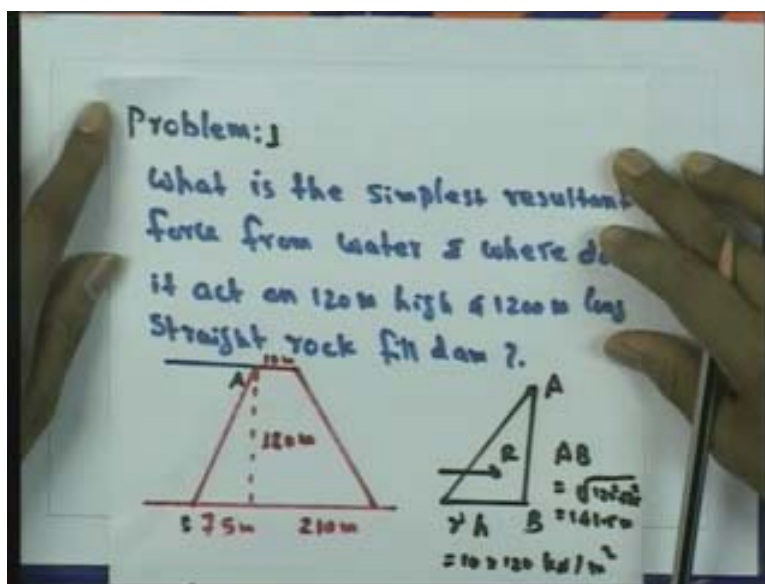 Problem:1
What is the simplest resultant
force from water & where
it act on 120m high & 1200m long
straight rock fill dam ?.
10m
A
120m
75m 210m
A
R
B
AB
=
= 141.5m
γh
= 10 × 120 kN/m²